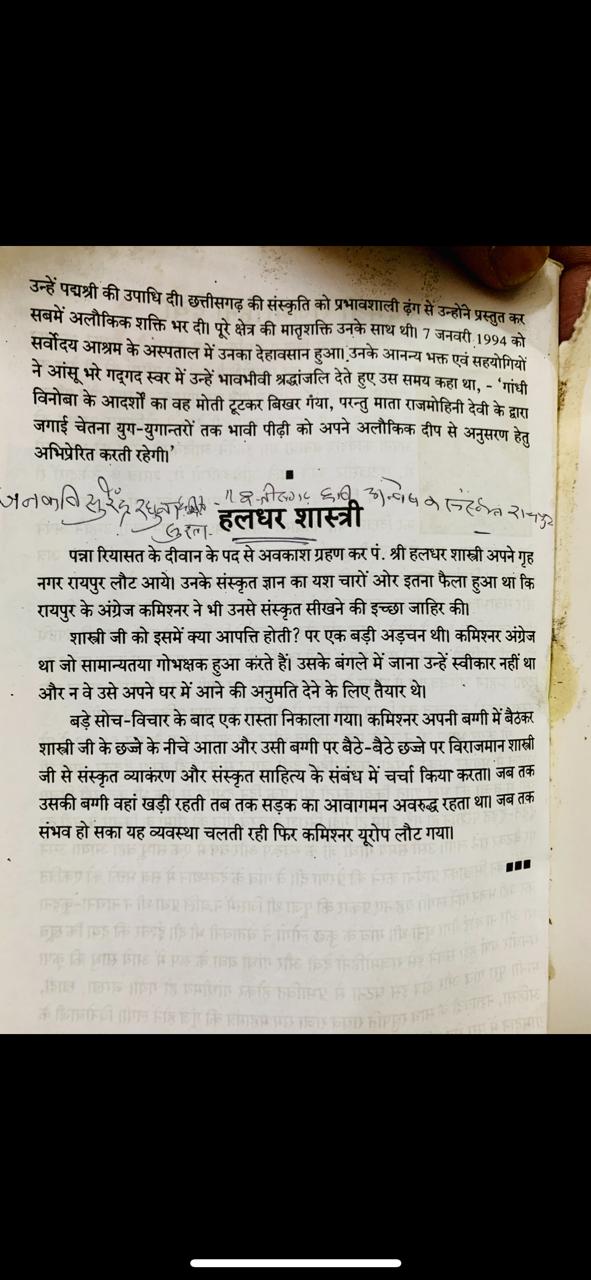 उन्हें पद्मश्री की उपाधि दी। छत्तीसगढ़ की संस्कृति को प्रभावशाली ढ़ंग से उन्होंने प्रस्तुत कर
सबमें अलौकिक शक्ति भर दी। पूरे क्षेत्र की मातृशक्ति उनके साथ थी। 7 जनवरी 1994 को
सर्वोदय आश्रम के अस्पताल में उनका देहावसान हुआ। उनके आनन्य भक्त एवं सहयोगियों
ने आंसू भरे गद्‌गद स्वर में उन्हें भावभीवी श्रद्धांजलि देते हुए उस समय कहा था, - 'गांधी
विनोबा के आदर्शों का वह मोती टूटकर बिखर गया, परन्तु माता राजमोहिनी देवी के द्वारा
जगाई चेतना युग-युगान्तरों तक भावी पीढ़ी को अपने अलौकिक दीप से अनुसरण हेतु
अभिप्रेरित करती रहेगी।'
जनकवि
हलधर शास्त्री
पन्ना रियासत के दीवान के पद से अवकाश ग्रहण कर पं. श्री हलधर शास्त्री अपने गृह
नगर रायपुर लौट आये। उनके संस्कृत ज्ञान का यश चारों ओर इतना फैला हुआ था कि
रायपुर के अंग्रेज कमिश्नर ने भी उनसे संस्कृत सीखने की इच्छा जाहिर की।
शास्त्री जी को इसमें क्या आपत्ति होती? पर एक बड़ी अड़चन थी। कमिश्नर अंग्रेज
था जो सामान्यतया गोभक्षक हुआ करते हैं। उसके बंगले में जाना उन्हें स्वीकार नहीं था
और न वे उसे अपने घर में आने की अनुमति देने के लिए तैयार थे।
बड़े सोच-विचार के बाद एक रास्ता निकाला गया। कमिश्नर अपनी बग्गी में बैठकर
शास्त्री जी के छज्जे के नीचे आता और उसी बग्गी पर बैठे-बैठे छज्जे पर विराजमान शास्त्री
जी से संस्कृत व्याकरण और संस्कृत साहित्य के संबंध में चर्चा किया करता। जब तक
उसकी बग्गी वहां खड़ी रहती तब तक सड़क का आवागमन अवरुद्ध रहता था। जब तक
संभव हो सका यह व्यवस्था चलती रही फिर कमिश्नर यूरोप लौट गया।